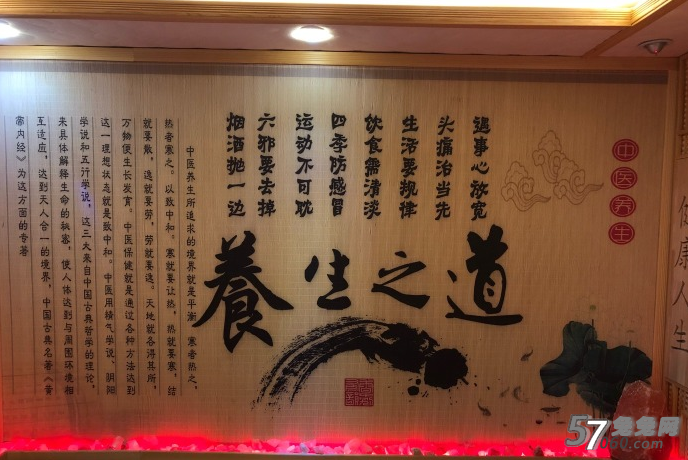 健康人生
中医养生
遇事心放宽
头痛治当先
生活要规律
饮食需清淡
四季防感冒
运动不可耽
六邪要去掉
烟酒抛一边
養生之道
中医养生所追求的境界就是平衡，寒者热之，
热者寒之。以致中和。寒就要让热，热就要寒，结
就要散，逸就要劳，劳就要逸。天地就各得其所，
万物便生长发育。中医保健就是通过各种方法达到
这一理想状态就是致中和。中医用精气学说、阴阳
学说和五行学说，这三大来自中国古典哲学的理论，
来具体解释生命的秘密，使人体达到与周围环境相
互适应，达到天人合一的境界，中国古典名著《黄
帝内经》为这方面的专著
57